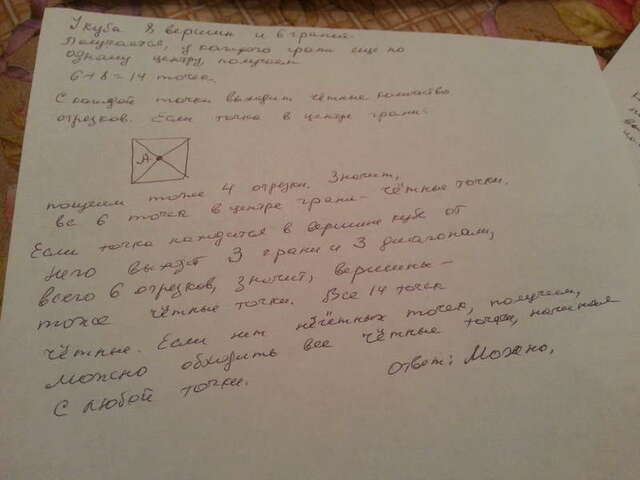 У куба 8 вершин и 6 граней.
Получается, у каждого грани еще по
одному центру, получаем
6+8=14 точек.
С каждой точки выходит чётные количество
отрезков. Если точка в центре грани:
A.
пощем точке 4 отрезки. Значит,
все 6 точек в центре грани - чётные точки.
Если точка находится в вершине куба от
него выйдет 3 грани и 3 диагонали,
всего 6 отрезков, значит, вершины -
тоже чётные точки. Все 14 точек
чётные. Если нет нечётных точек, получаем,
можно обходить все чётные точки, начиная
с любой точки. Ответ: Можно.